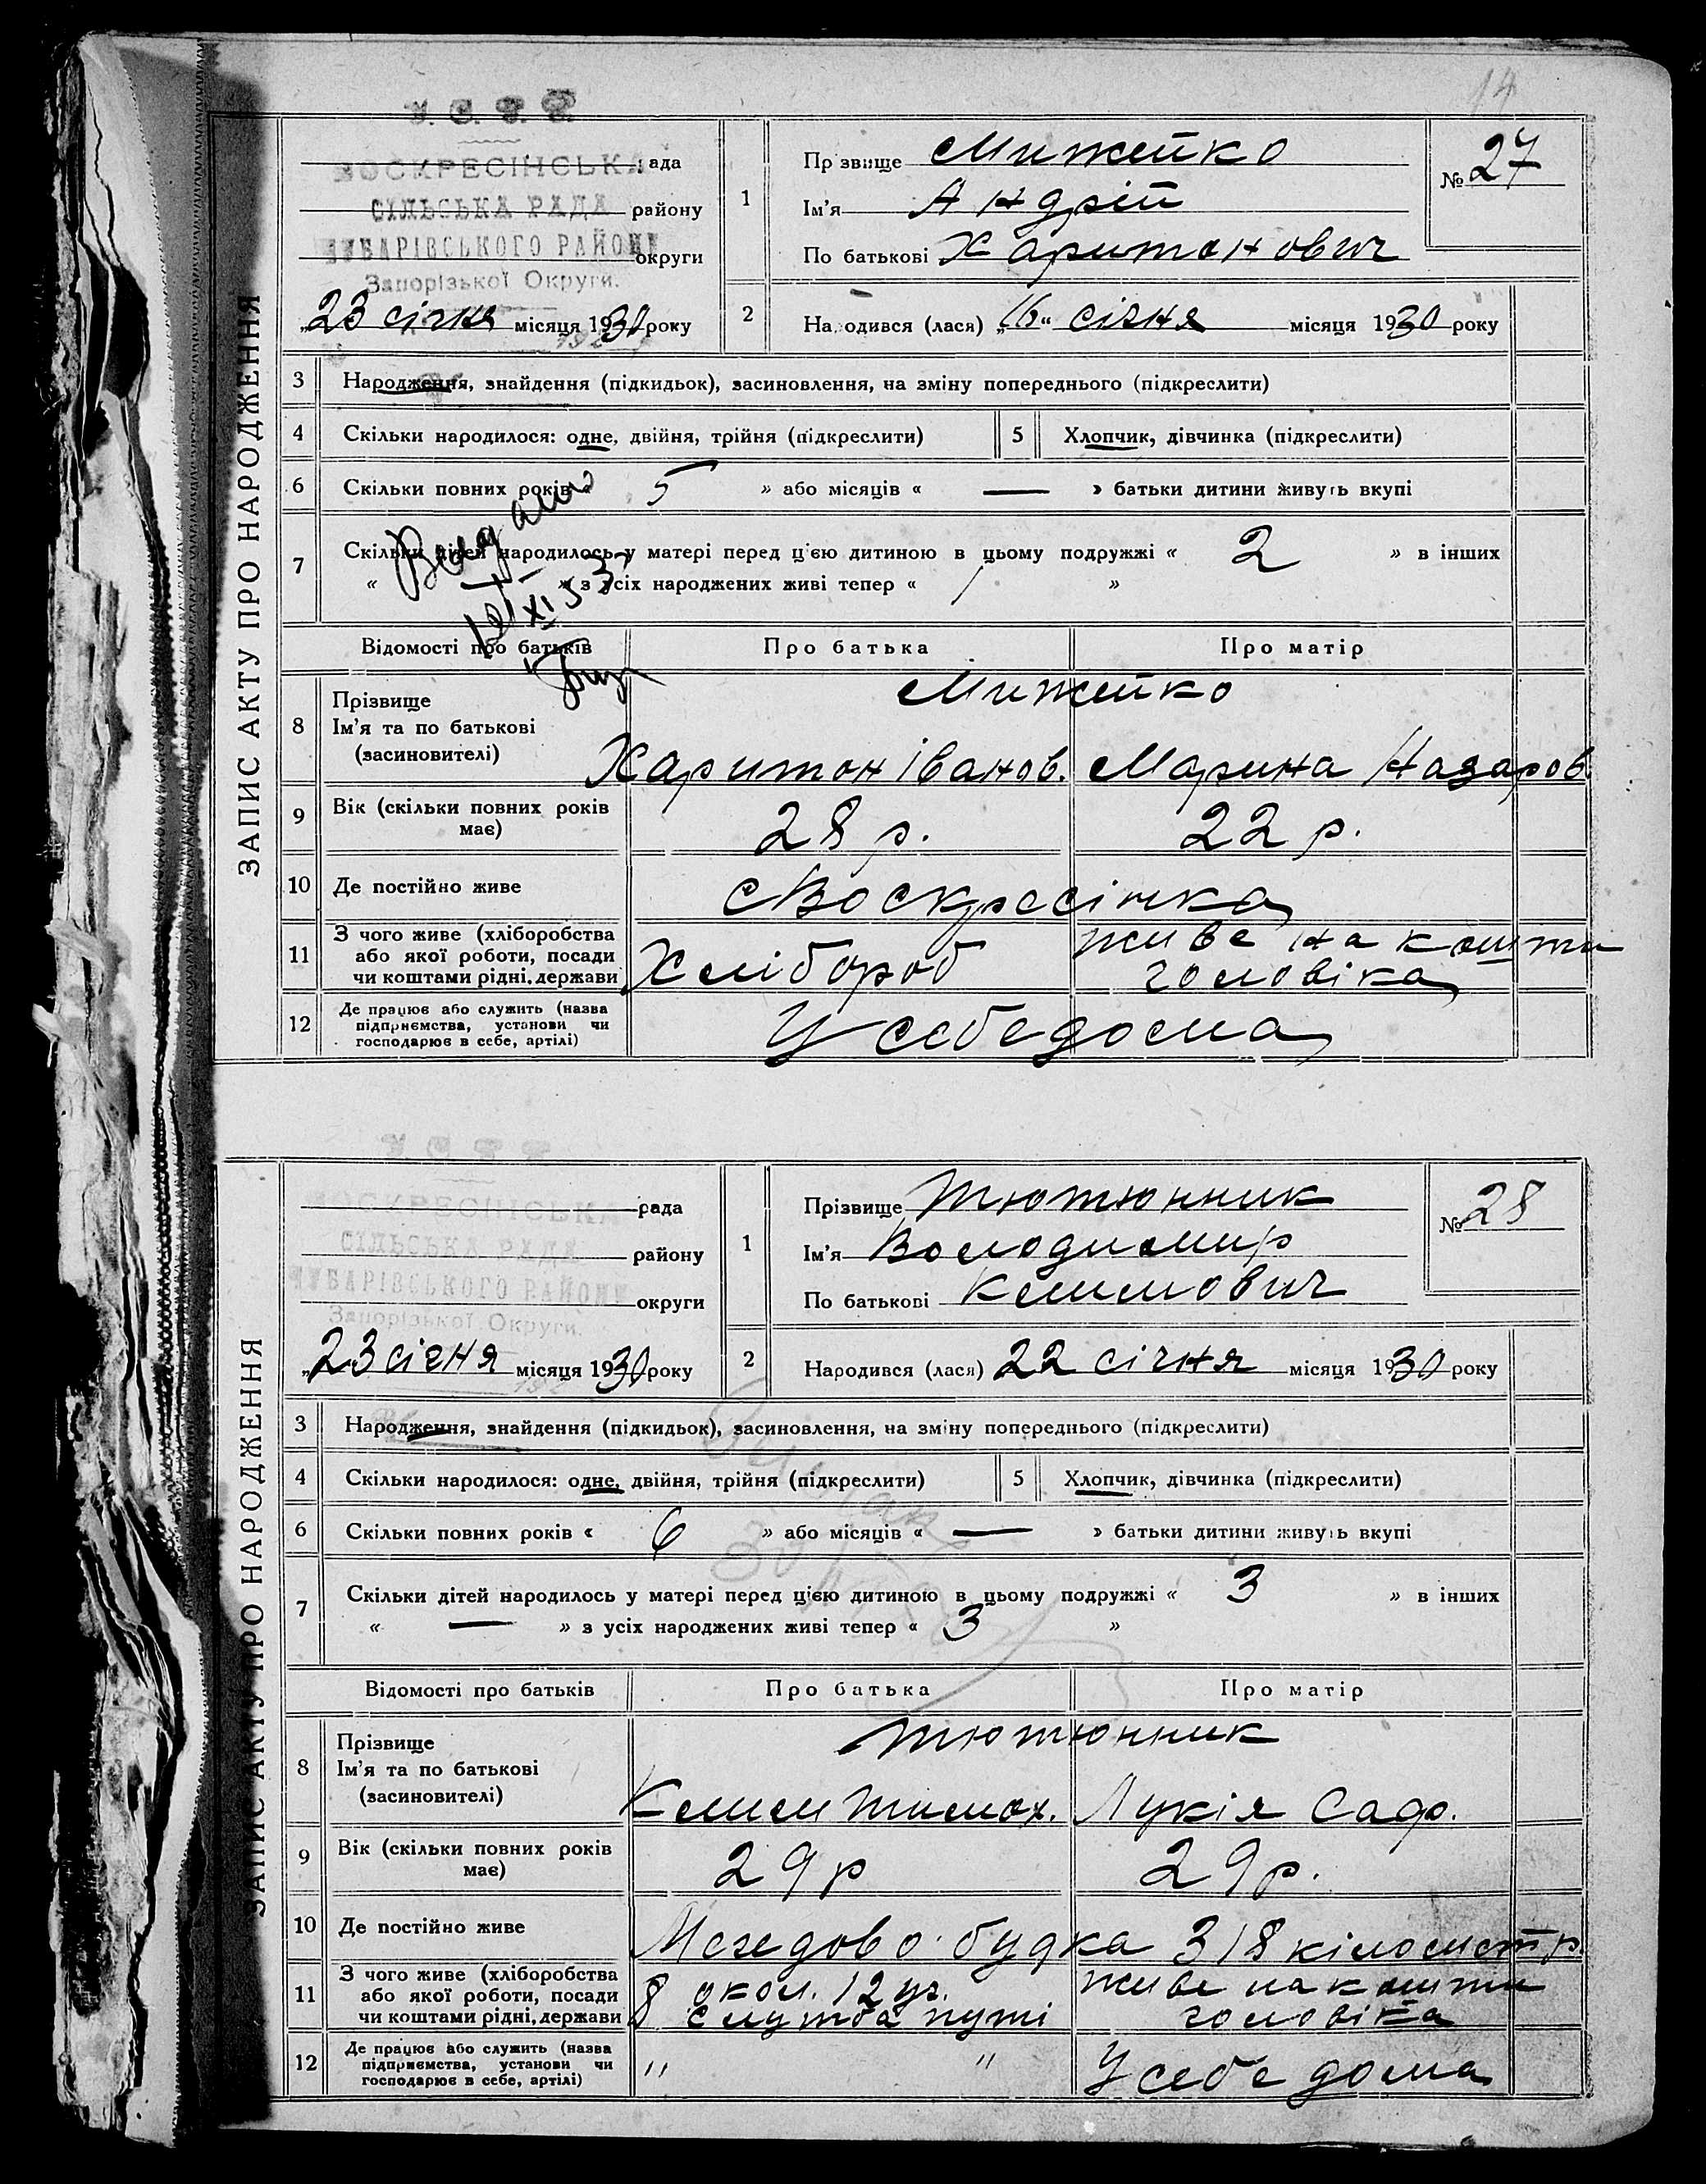 14
У. С. Р. Р.
ВОСКРЕСІНСЬКА рада
СІЛЬСЬКА РАДА району
ЧУБАРІВСЬКОГО РАЙОНУ округи
Запорізької Округи.
„23 січня місяця 1930 року
ЗАПИС АКТУ ПРО НАРОДЖЕННЯ
1 Прізвище Мижейко
Ім'я Андрій
По батькові Харитонович
№ 27
2 Народився (лася) „16“ січня місяця 1930 року
3 Народження, знайдення (підкидьок), засиновлення, на зміну попереднього (підкреслити)
4 Скільки народилося: одне, двійня, трійня (підкреслити) 5 Хлопчик, дівчинка (підкреслити)
6 Скільки повних років « 5 » або місяців « — » батьки дитини живуть вкупі
7 Скільки дітей народилось у матері перед цією дитиною в цьому подружжі « 2 » в інших
« — » з усіх народжених живі тепер « 1 »
Відомості про батьків Про батька Про матір
8 Прізвище Мижейко
Ім'я та по батькові
(засиновителі) Харитон Іванов. Марина Назаров.
9 Вік (скільки повних років має) 28 р. 22 р.
10 Де постійно живе с Воскресінка
11 З чого живе (хліборобства
або якої роботи, посади
чи коштами рідні, держави Хлібороб живе на кошти
чоловіка
12 Де працює або служить (назва
підприємства, установи чи
господарює в себе, артілі) У себе дома
У. С. Р. Р.
ВОСКРЕСІНСЬКА рада
СІЛЬСЬКА РАДА району
ЧУБАРІВСЬКОГО РАЙОНУ округи
Запорізької Округи.
„23 січня місяця 1930 року
ЗАПИС АКТУ ПРО НАРОДЖЕННЯ
1 Прізвище Тютюнник
Ім'я Володимир
По батькові Климович
№ 28
2 Народився (лася) 22 січня місяця 1930 року
3 Народження, знайдення (підкидьок), засиновлення, на зміну попереднього (підкреслити)
4 Скільки народилося: одне, двійня, трійня (підкреслити) 5 Хлопчик, дівчинка (підкреслити)
6 Скільки повних років « 6 » або місяців « — » батьки дитини живуть вкупі
7 Скільки дітей народилось у матері перед цією дитиною в цьому подружжі « 3 » в інших
« — » з усіх народжених живі тепер « 3 »
Відомості про батьків Про батька Про матір
8 Прізвище Тютюнник
Ім'я та по батькові
(засиновителі) Клим Тимох. Лукія Сидо.
9 Вік (скільки повних років має) 29 р 29 р.
10 Де постійно живе будка 318 кілометр.
11 З чого живе (хліборобства
або якої роботи, посади
чи коштами рідні, держави 8 окол. 12 уч.
служба путі живе на кошти
чоловіка
12 Де працює або служить (назва
підприємства, установи чи
господарює в себе, артілі) " " У себе дома